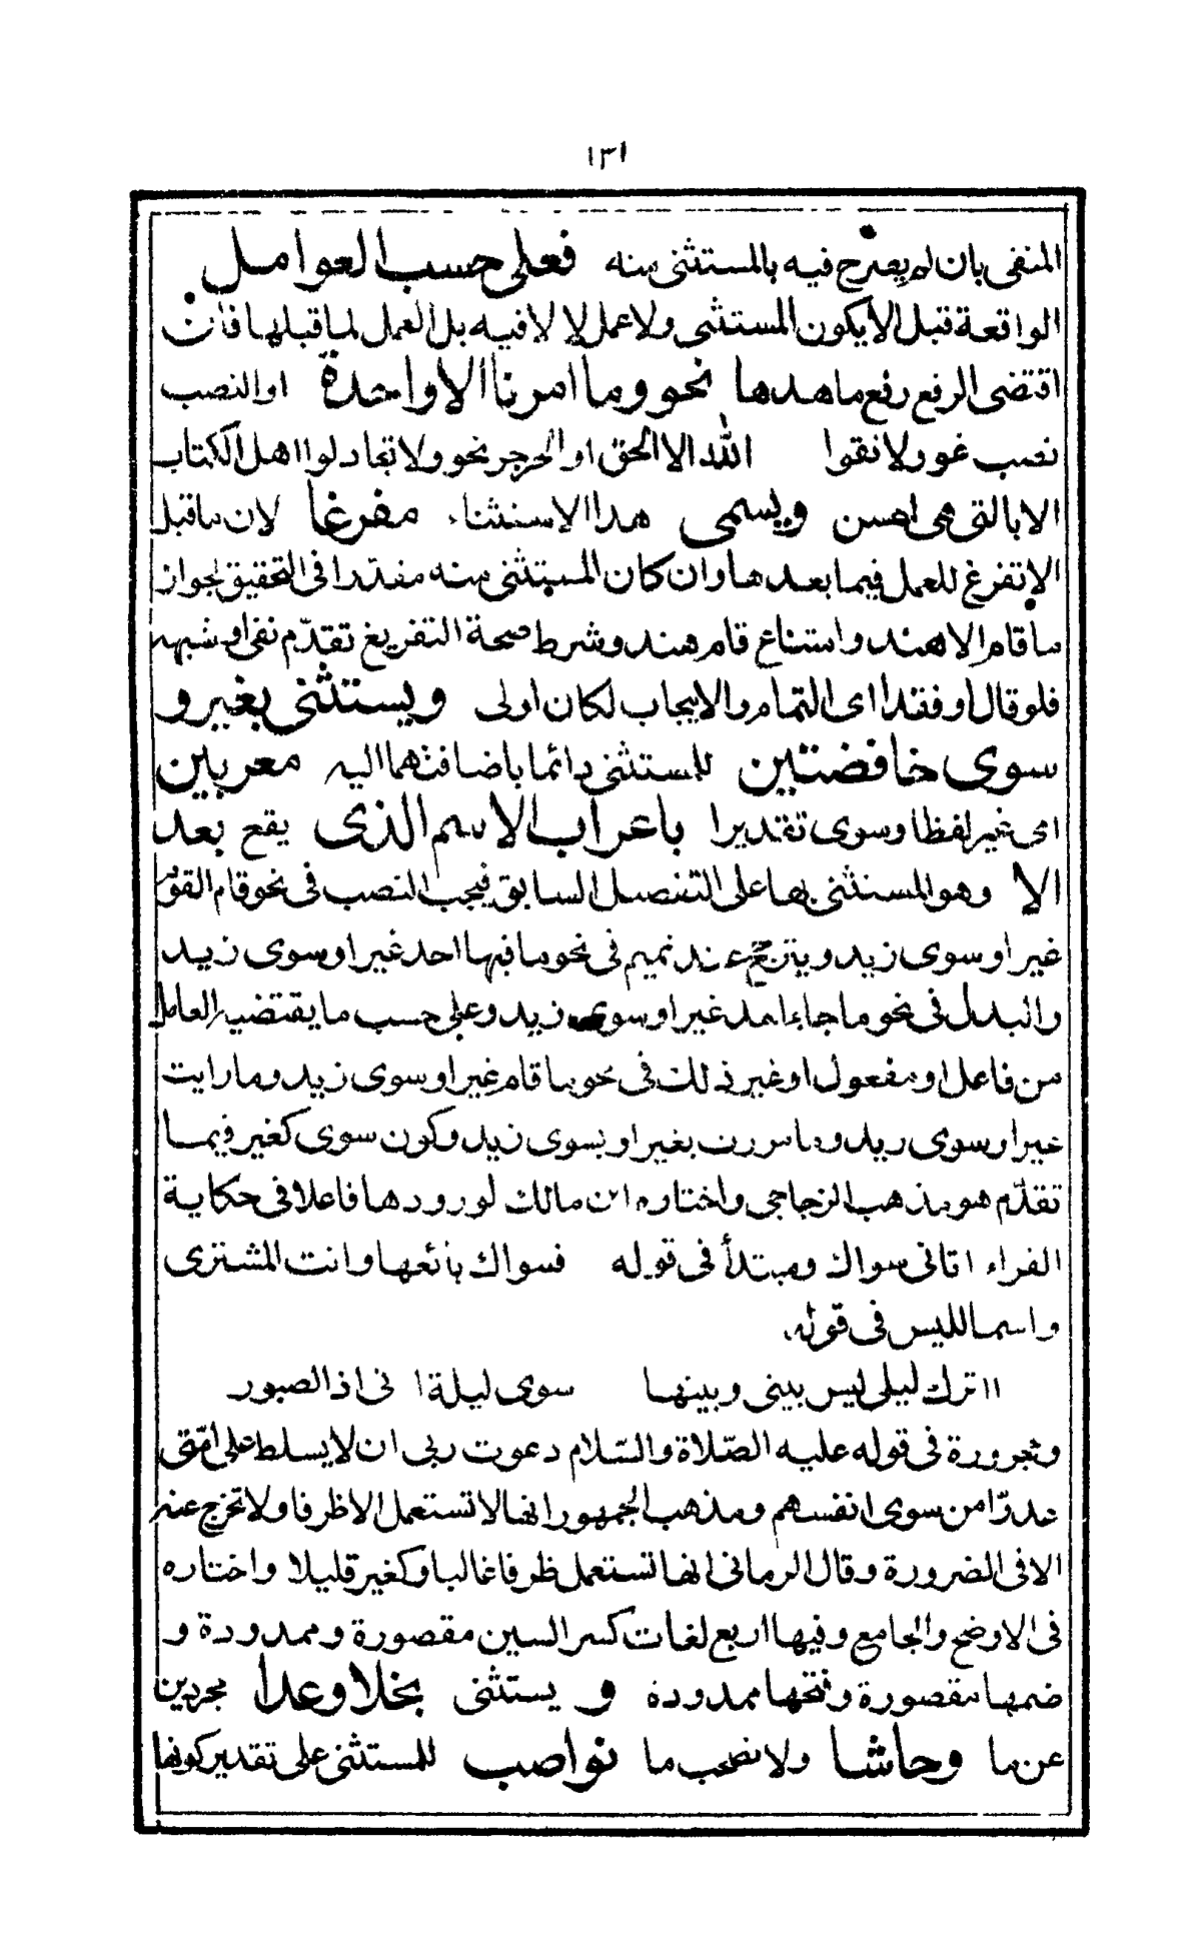 ١٣١
المنفى بان لم يصرح فيه بالمستثنى منه فعلى حسب العوامل
الواقعة قبل الا يكون المستثنى ولا عمل لالا فيه بل العمل لما قبلها فان
اقتضى الرفع رفع ما بعدها نحو وما امرنا الا واحدة او النصب
نصب نحو ولا تقولوا على الله الا الحق او الجر جر نحو ولا تجادلوا اهل الكتاب
الا بالتى هى احسن ويسمى هذا الاستثناء مفرغا لان ما قبل
الا تفرغ للعمل فيما بعدها وان كان المستثنى منه مقدرا فى التحقيق لجواز
ما قام الا هند وامتناع قام هند وشرط صحة التفريغ تقدّم نفى او شبهه
فلو قال او فقدا اى التمام والايجاب لكان اولى ويستثنى بغير و
سوى خافضتين للمستثنى دائما باضافتهما اليه معربين
اى غير لفظا وسوى تقديرا باعراب الاسم الذى يقع بعد
الا وهو المستثنى بها على التفصيل السابق فيجب النصب فى نحو قام القوم
غير او سوى زيد ويترجح عند تميم فى نحو ما فيها احد غير او سوى زيد
والبدل فى نحو ما جاء احد غير او سوى زيد وعلى حسب ما يقتضيه العامل
من فاعل او مفعول او غير ذلك فى نحو ما قام غير او سوى زيد وما رايت
غير او سوى زيد وما مررت بغير او بسوى زيد وكون سوى كغير فيما
تقدّم هو مذهب الزجاجى واختاره ابن مالك لورودها فاعلا فى حكاية
الفراء اتانى سواك ومبتدأ فى قوله فسواك بائعها وانت المشترى
واسما لليس فى قوله
ااترك ليلى ليس بينى وبينها سوى ليلة انى اذا لصبور
ومجرورة فى قوله عليه الصّلاة والسّلام دعوت ربى ان لا يسلط على امّتى
عدوّا من سوى انفسهم ومذهب الجمهور انها لا تستعمل الا ظرفا ولا تخرج عنه
الا فى الضرورة وقال الرمانى انها تستعمل ظرفا غالبا وكغير قليلا واختاره
فى الاوضح والجامع وفيها اربع لغات كسر السين مقصورة وممدودة و
ضمها مقصورة وفتحها ممدودة و يستثنى بخلا وعدا مجردين
عن ما وحاشا ولا تصحب ما نواصب للمستثنى على تقدير كونها